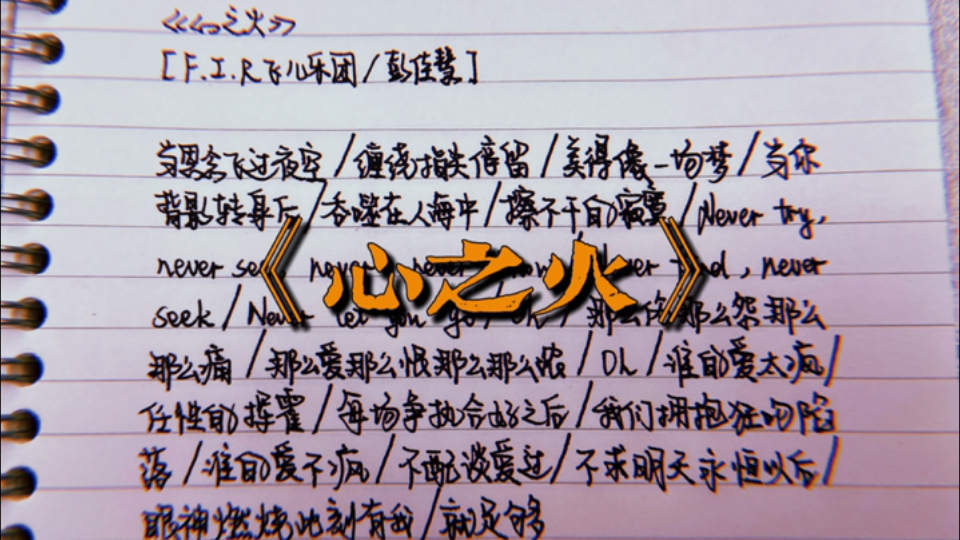 《心之火》
[F.I.R飞儿乐团/彭佳慧]
当思念飞过夜空/缠绕指尖停留/美得像一场梦/当你
背影转身后/吞噬在人海中/擦不干的寂寞/Never try,
never never never
《心之火》
seek/Never let you go, oh/那么那么怨那么
那么痛/那么爱那么恨那么那么浓/Oh/谁的爱太疯/
任性的挥霍/每场争执合好之后/我们拥抱狂吻陷
落/谁的爱不疯/不配谈爱过/不求明天永恒以后/
眼神燃烧此刻有我/就足够